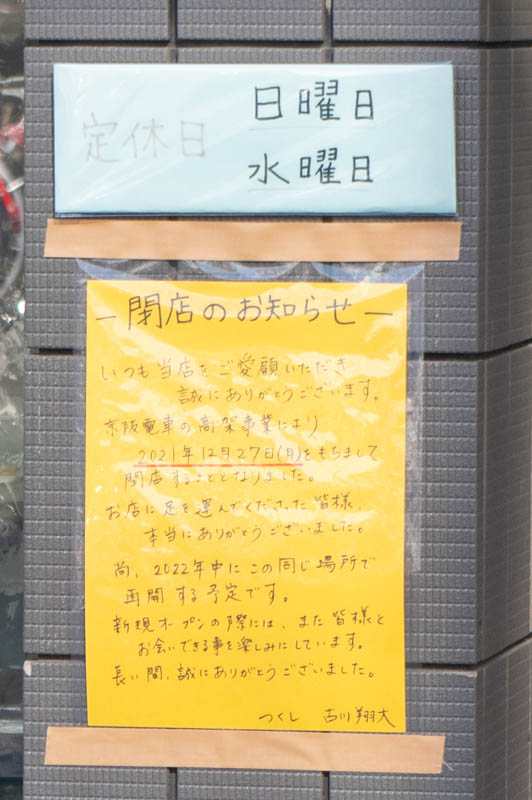 定休日
日曜日
水曜日
ー閉店のお知らせー
いつも当店をご愛顧いただき
誠にありがとうございます。
京阪電車の高架事業により
2021年12月27日(月)をもちまして
閉店することとなりました。
お店に足を運んでくださった皆様、
本当にありがとうございました。
尚、2022年中にこの同じ場所で
再開する予定です。
新規オープンの際には、また皆様と
お会いできる事を楽しみにしています。
長い間、誠にありがとうございました。
つくし 古川翔大